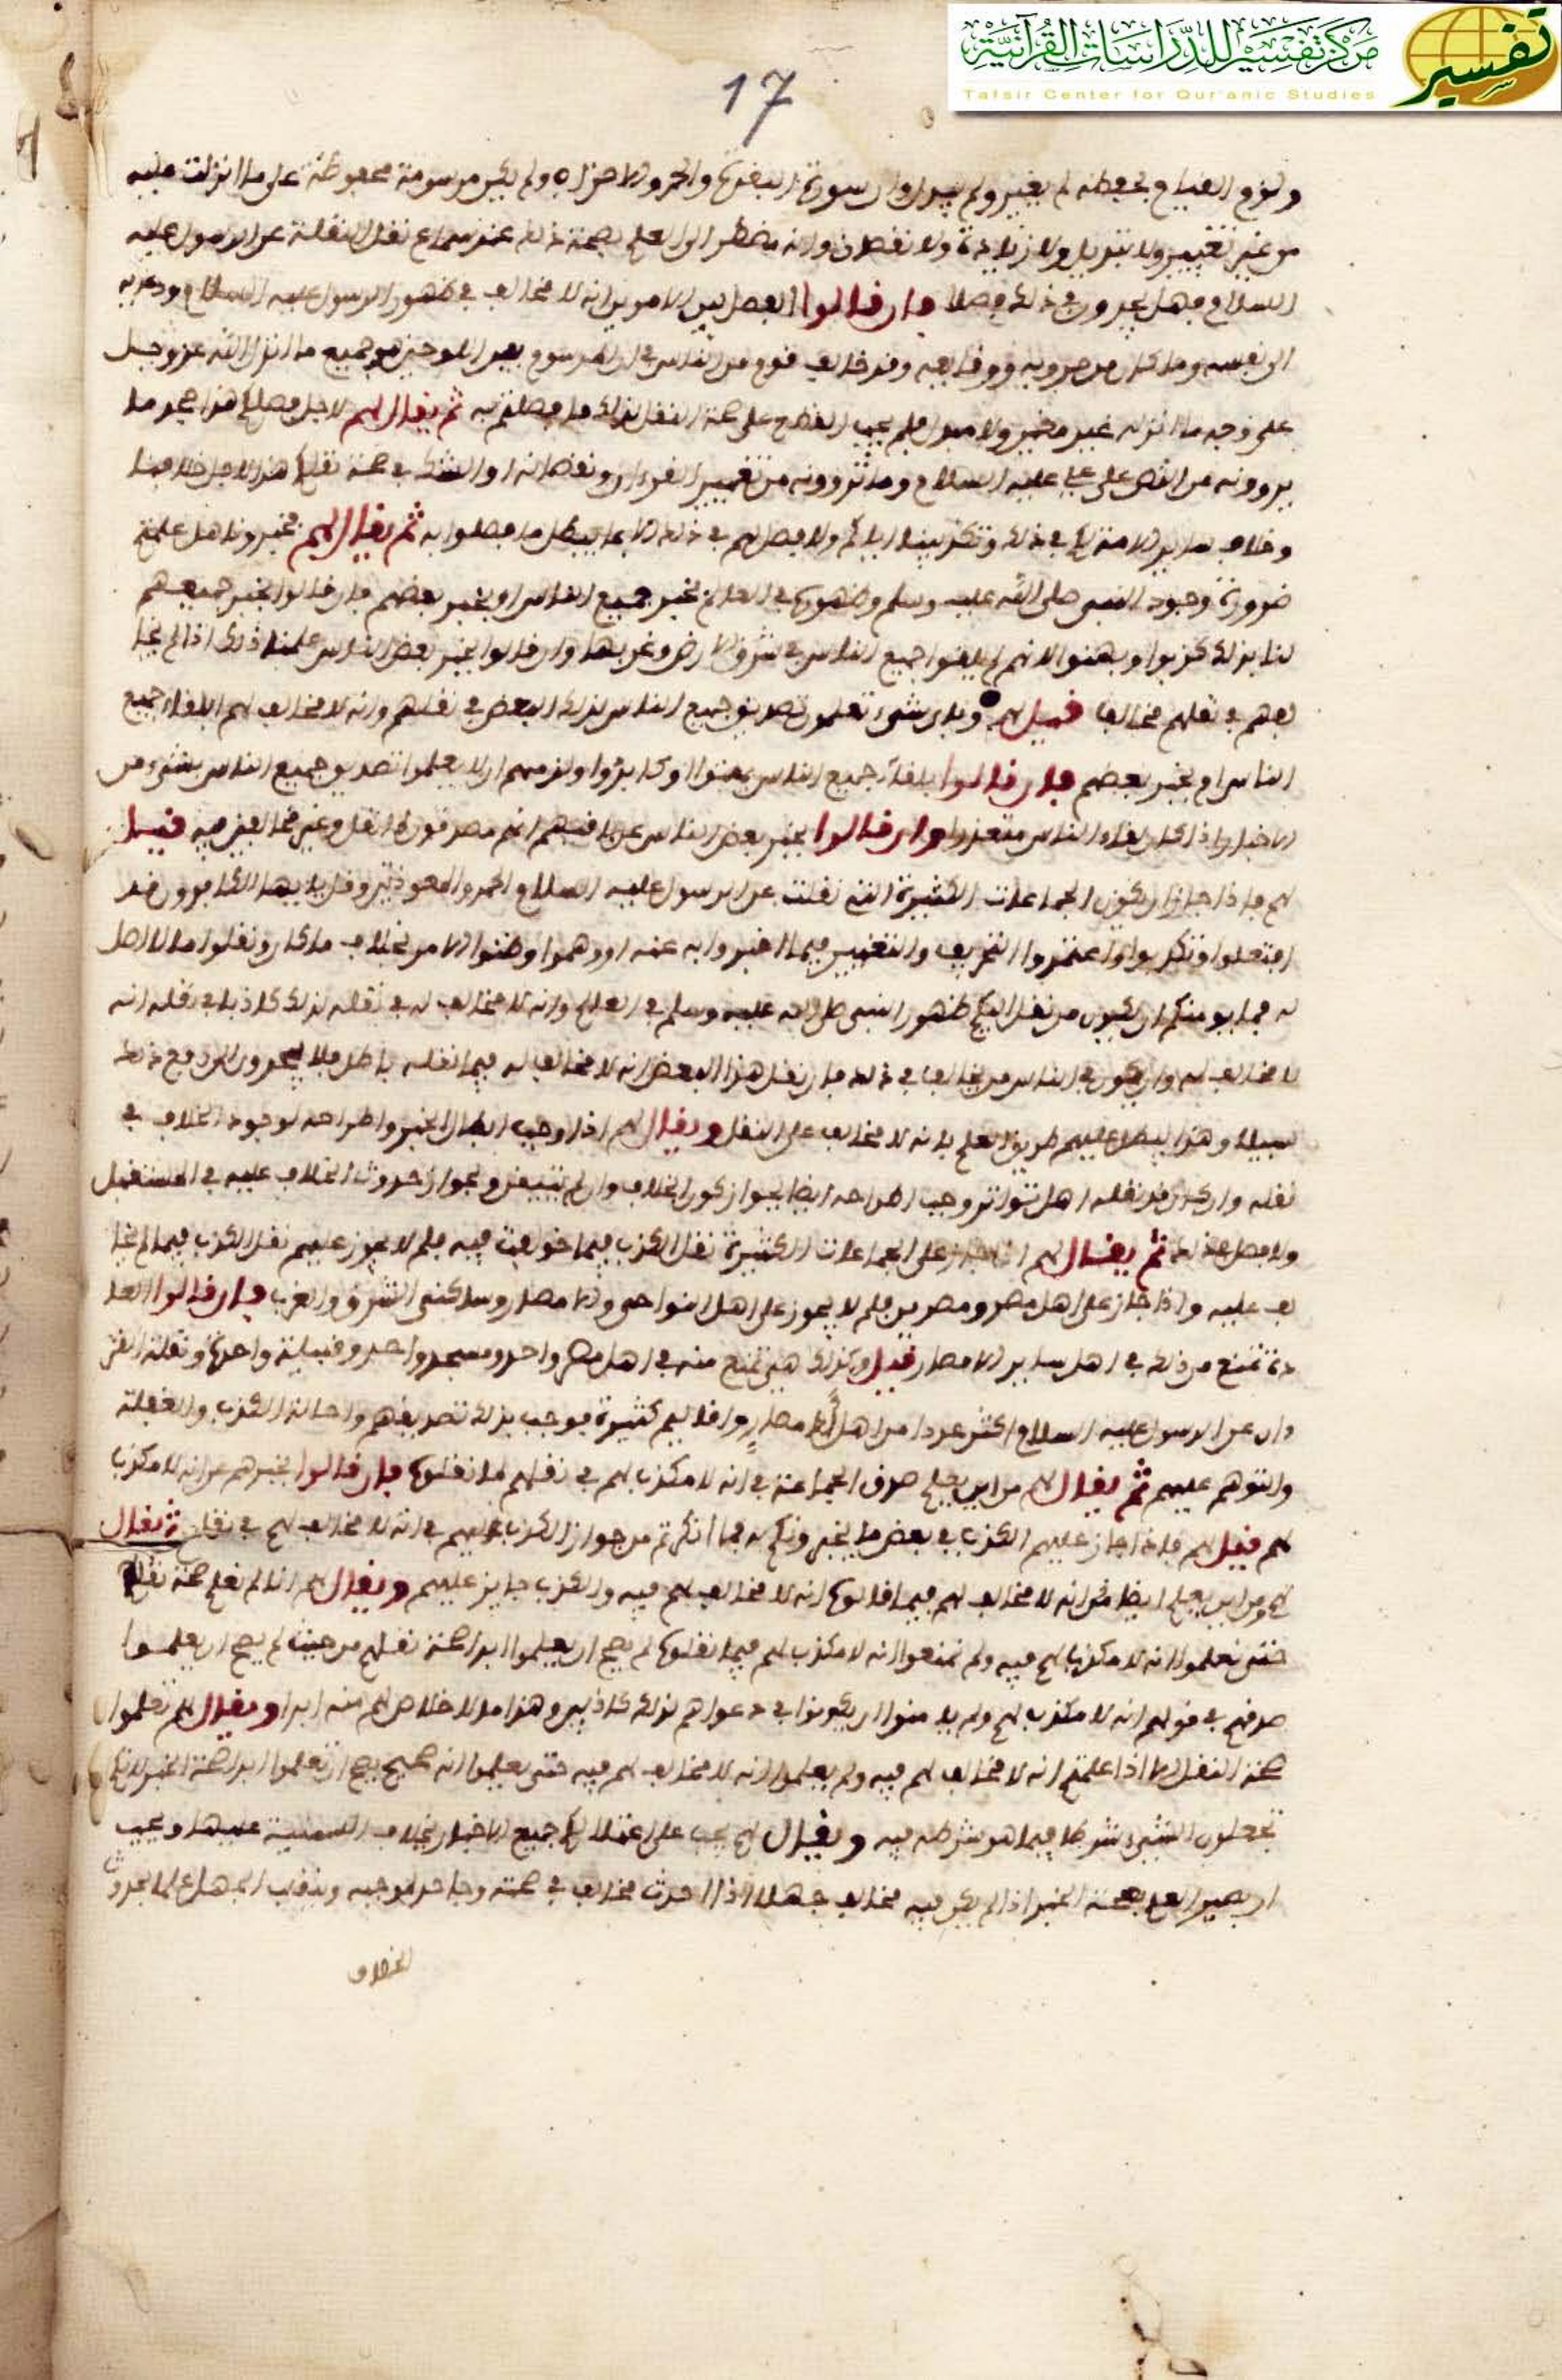 مركز تفسير للدراسات القرآنية
Tafsir Center for Qur'anic Studies
تفسير
17
ولزوم القيام بحفظه لم يغير ولم يبدل وان سورة البقرة والحمد والاحزاب ولم يكن مرسومة محفوظة على ما انزلت عليه
من غير تغيير ولا تبديل ولا زيادة ولا نقصان وانه مضطر الى العلم بصحة ذلك عند سماع نقل النقلة عن الرسول عليه
السلام فهل يجدون في ذلك فصلا فان قالوا الفصل بين الامرين انه لا مخالف في ظهور الرسول عليه السلام ودعوته
الى نفسه وما كان من حروبه ووقايعه وقد خالف قوم من الناس في ان المرسوم بين اللوحين هو جميع ما انزل الله عز وجل
على وجه ما انزله غير مغير ولا مبدل فلم يجب القدح على صحة النقل لذلك ما فصلتم به ثم يقال لهم لاجل فصلكم هذا صح ما
يروونه من النص على علي عليه السلام وما تروونه من تغيير القرءان ونقصانه او الشك في صحة نقلكم هذا لاجل خلافنا
وخلاف ساير الامة لكم في ذلك وتكذيبنا اياكم ولا فصل لهم في ذلك الا بما يبطل ما فصلوا به ثم يقال لهم خبرونا هل علمتم
ضرورة وجود النبي صلى الله عليه وسلم وظهوره في العالم بخبر جميع الناس او بخبر بعضهم فان قالوا بخبر جميعهم
لنا بذلك كذبوا وبهتوا لانهم لم يلقوا جميع الناس في شرق الارض وغربها وان قالوا بخبر بعض الناس علمنا ذلك اذا لم يخا
لفهم في نقلهم مخالف قيل لهم وباي شيء تعلمون تصديق جميع الناس لذلك البعض في نقلهم وانه لا مخالف لهم ابلقاء جميع
الناس ام بخبر بعضهم فان قالوا بلقاء جميع الناس بهتوا وكابروا ولزمهم ان لا يعلموا تصديق جميع الناس بشيء من
الاخبار اذا كان لقاء الناس متعذرا وان قالوا بخبر بعض الناس عن باقيهم انهم مصدقون لما نقل وغير مخالفين فيه قيل
لهم فاذا جاز ان يكون الجماعات الكثيرة التي نقلت عن الرسول عليه السلام الحمد والمعوذتين وقل يا ايها الكافرون قد
افتعلوا وتكذبوا واعتمدوا التحريف والتغيير فيما اخبروا به عنه او وهموا وظنوا الامر بخلاف ما كان ونقلوا ما لا اصل
له فما يومنكم ان يكون من نقل اليكم ظهور النبي صلى الله عليه وسلم في العالم وانه لا مخالف له في نقله لذلك كاذبا في قوله انه
لا مخالف له وان يكون في الناس من يخالف في ذلك فان نقل هذا البعض انه لا مخالف له فيما نقله باطل فلا يجدون الى دفع ذلك
سبيلا وهذا يبطل عليهم طريق العلم بانه لا مخالف على النقل ويقال لهم اذا وجب ابطال الخبر واطراحه لوجود الخلاف في
نقله وان كان قد نقله اهل تواتر وجب اطراحه ايضا لجواز كون الخلاف وان لم يتيقن ولجواز حدوث الخلاف عليه في المستقبل
ولا فصل في ذلك ثم يقال لهم اذا جاز على الجماعات الكثيرة نقل الكذب فيما خولفت فيه فلم لا يجوز عليهم نقل الكذب فيما لم يخا
لف عليه واذا جاز على اهل مصر ومصرين فلم لا يجوز على اهل النواحي والامصار وساكني الشرق والغرب فان قالوا العا
دة تمنع من ذلك في اهل ساير الامصار قيل وكذلك هي تمنع منه في اهل مصر واحد ومسجد واحد وقبيلة واحدة ونقلة القر
ءان عن الرسول عليه السلام اكثر عددا من اهل امصار واقاليم كثيرة فوجب بذلك تصديقهم واحالة الكذب والغفلة
والتوهم عليهم ثم يقال لهم من اين يعلم صدق الجماعة في انه لا مكذب لهم في نقلهم لما نقلوه فان قالوا بخبرهم عن انه لا مكذب
لهم قيل لهم فاذا جاز عليهم الكذب في بعض ما يخبرونكم به فما انكرتم من جواز الكذب عليهم في انه لا مخالف لهم في نقلهم ثم يقال
لهم ومن اين يعلم ايضا من انه لا مخالف لهم فيما قالوه انه لا مخالف لهم فيه والكذب جايز عليهم ويقال لهم اذا لم نعلم صحة نقلهم
حتى تعلموا انه لا مكذب لهم فيه ولم تمنعوا انه لا مكذب لهم فيما نقلوه لم يصح ان يعلموا ابدا صحة نقلهم من حيث لم يصح ان يعلموا
صدقهم في قولهم انه لا مكذب لهم ولم يامنوا ان يكونوا في دعواهم لذلك كاذبين وهذا ما لا خلاص لهم منه ابدا ويقال لهم لم تعلموا
صحة النقل الا اذا علمتم انه لا مخالف لهم فيه ولم يعلموا انه لا مخالف لهم فيه حتى يعلموا انه صحيح يصح ان تعلموا ابدا صحة الخبر لانكم
تجعلون الشيء شرطا فيما هو شرطه فيه ويقال لهم يجب على اعتلالكم جميع الاخبار بخلاف السمنية عليها ويجب
ان يصير العلم بصحة الخبر اذا لم يكن فيه مخالف جهلا اذا حدث مخالف في صحته وجاحد لموجبه وينقلب الجهل علما بحدوث
الخلاف